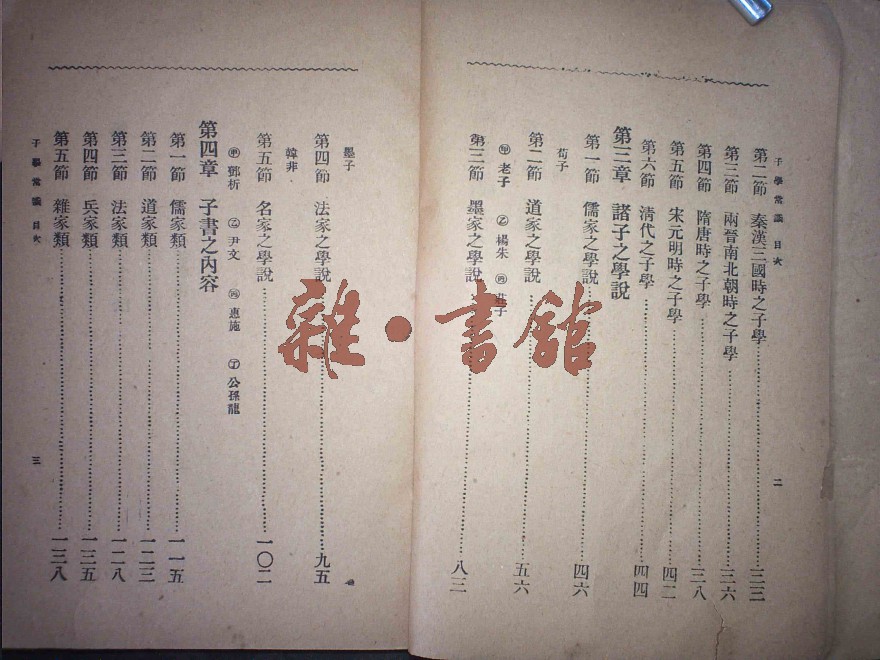 子學常識 目次
第二節 秦漢三國時之子學……三三
第三節 兩晉南北朝時之子學……三六
第四節 隋唐時之子學……三八
第五節 宋元明時之子學……四二
第六節 清代之子學……四四
第三章 諸子之學說
第一節 儒家之學說……四六
荀子
第二節 道家之學說……五六
㊙老子 ㊚楊朱 ㊛莊子
第三節 墨家之學說……八三
二
墨子
第四節 法家之學說……九五
韓非
第五節 名家之學說……一〇二
甲 鄧析 乙 尹文 丙 惠施 丁 公孫龍
第四章 子書之內容
第一節 儒家類……一一五
第二節 道家類……一二三
第三節 法家類……一二八
第四節 兵家類……一三五
第五節 雜家類……一三八
子學常識 目次
三
雜·書館